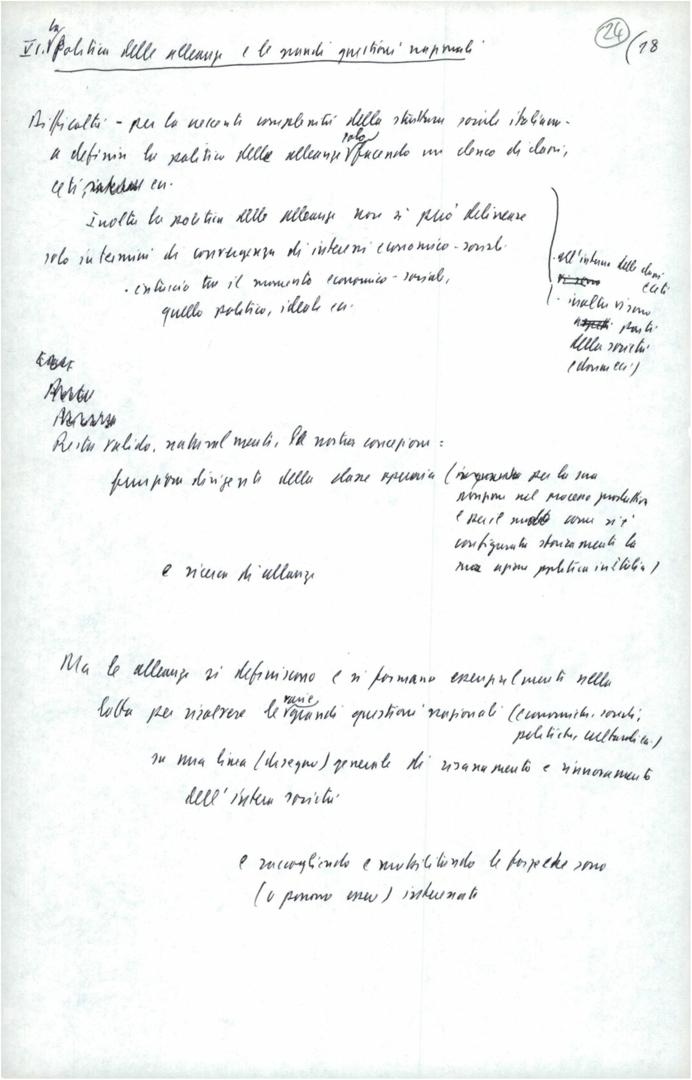 24
(18
VI. La politica delle alleanze e le grandi questioni nazionali
Difficoltà - per la crescente complessità della struttura sociale italiana -
a definire la politica delle alleanze solo facendo un elenco di classi,
ceti, ecc.
Inoltre la politica delle alleanze non si può delineare
solo in termini di convergenza di interessi economico-sociali
· intreccio tra il momento economico-sociale,
quello politico, ideale ecc.
· all'interno delle classi
ceti
· inoltre vi sono
parti
della società
(donne ecc.)
Resta valida, naturalmente, la nostra concezione:
funzione dirigente della classe operaia (in quanto per la sua
posizione nel processo produttivo
e per il modo come si è
configurata storicamente la
sua azione politica in Italia)
e ricerca di alleanze
Ma le alleanze si definiscono e si formano essenzialmente nella
lotta per risolvere le varie grandi questioni nazionali (economiche, sociali,
politiche, culturali ecc.)
su una linea (disegno) generale di risanamento e rinnovamento
dell'intera società
e raccogliendo e mobilitando le forze che sono
(o possono essere) interessate